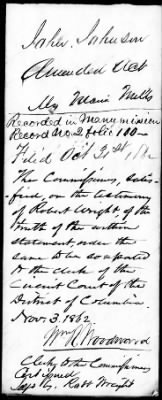 John Johnson
Amended Vert
By Maria Mills
Recorded in Manumission
Record No 2 folio 100
Filed Oct 31st 1862
The Commissioners, satis-
fied, on the testimony
of Robert Wright, of the
truth of the within
statement, order the
same to be
to the clerk of the
Circuit Court of the
District of Columbia.
Nov. 3. 1862
Wm R. Woodward
Clerk to the Commissioners
Robt Wright